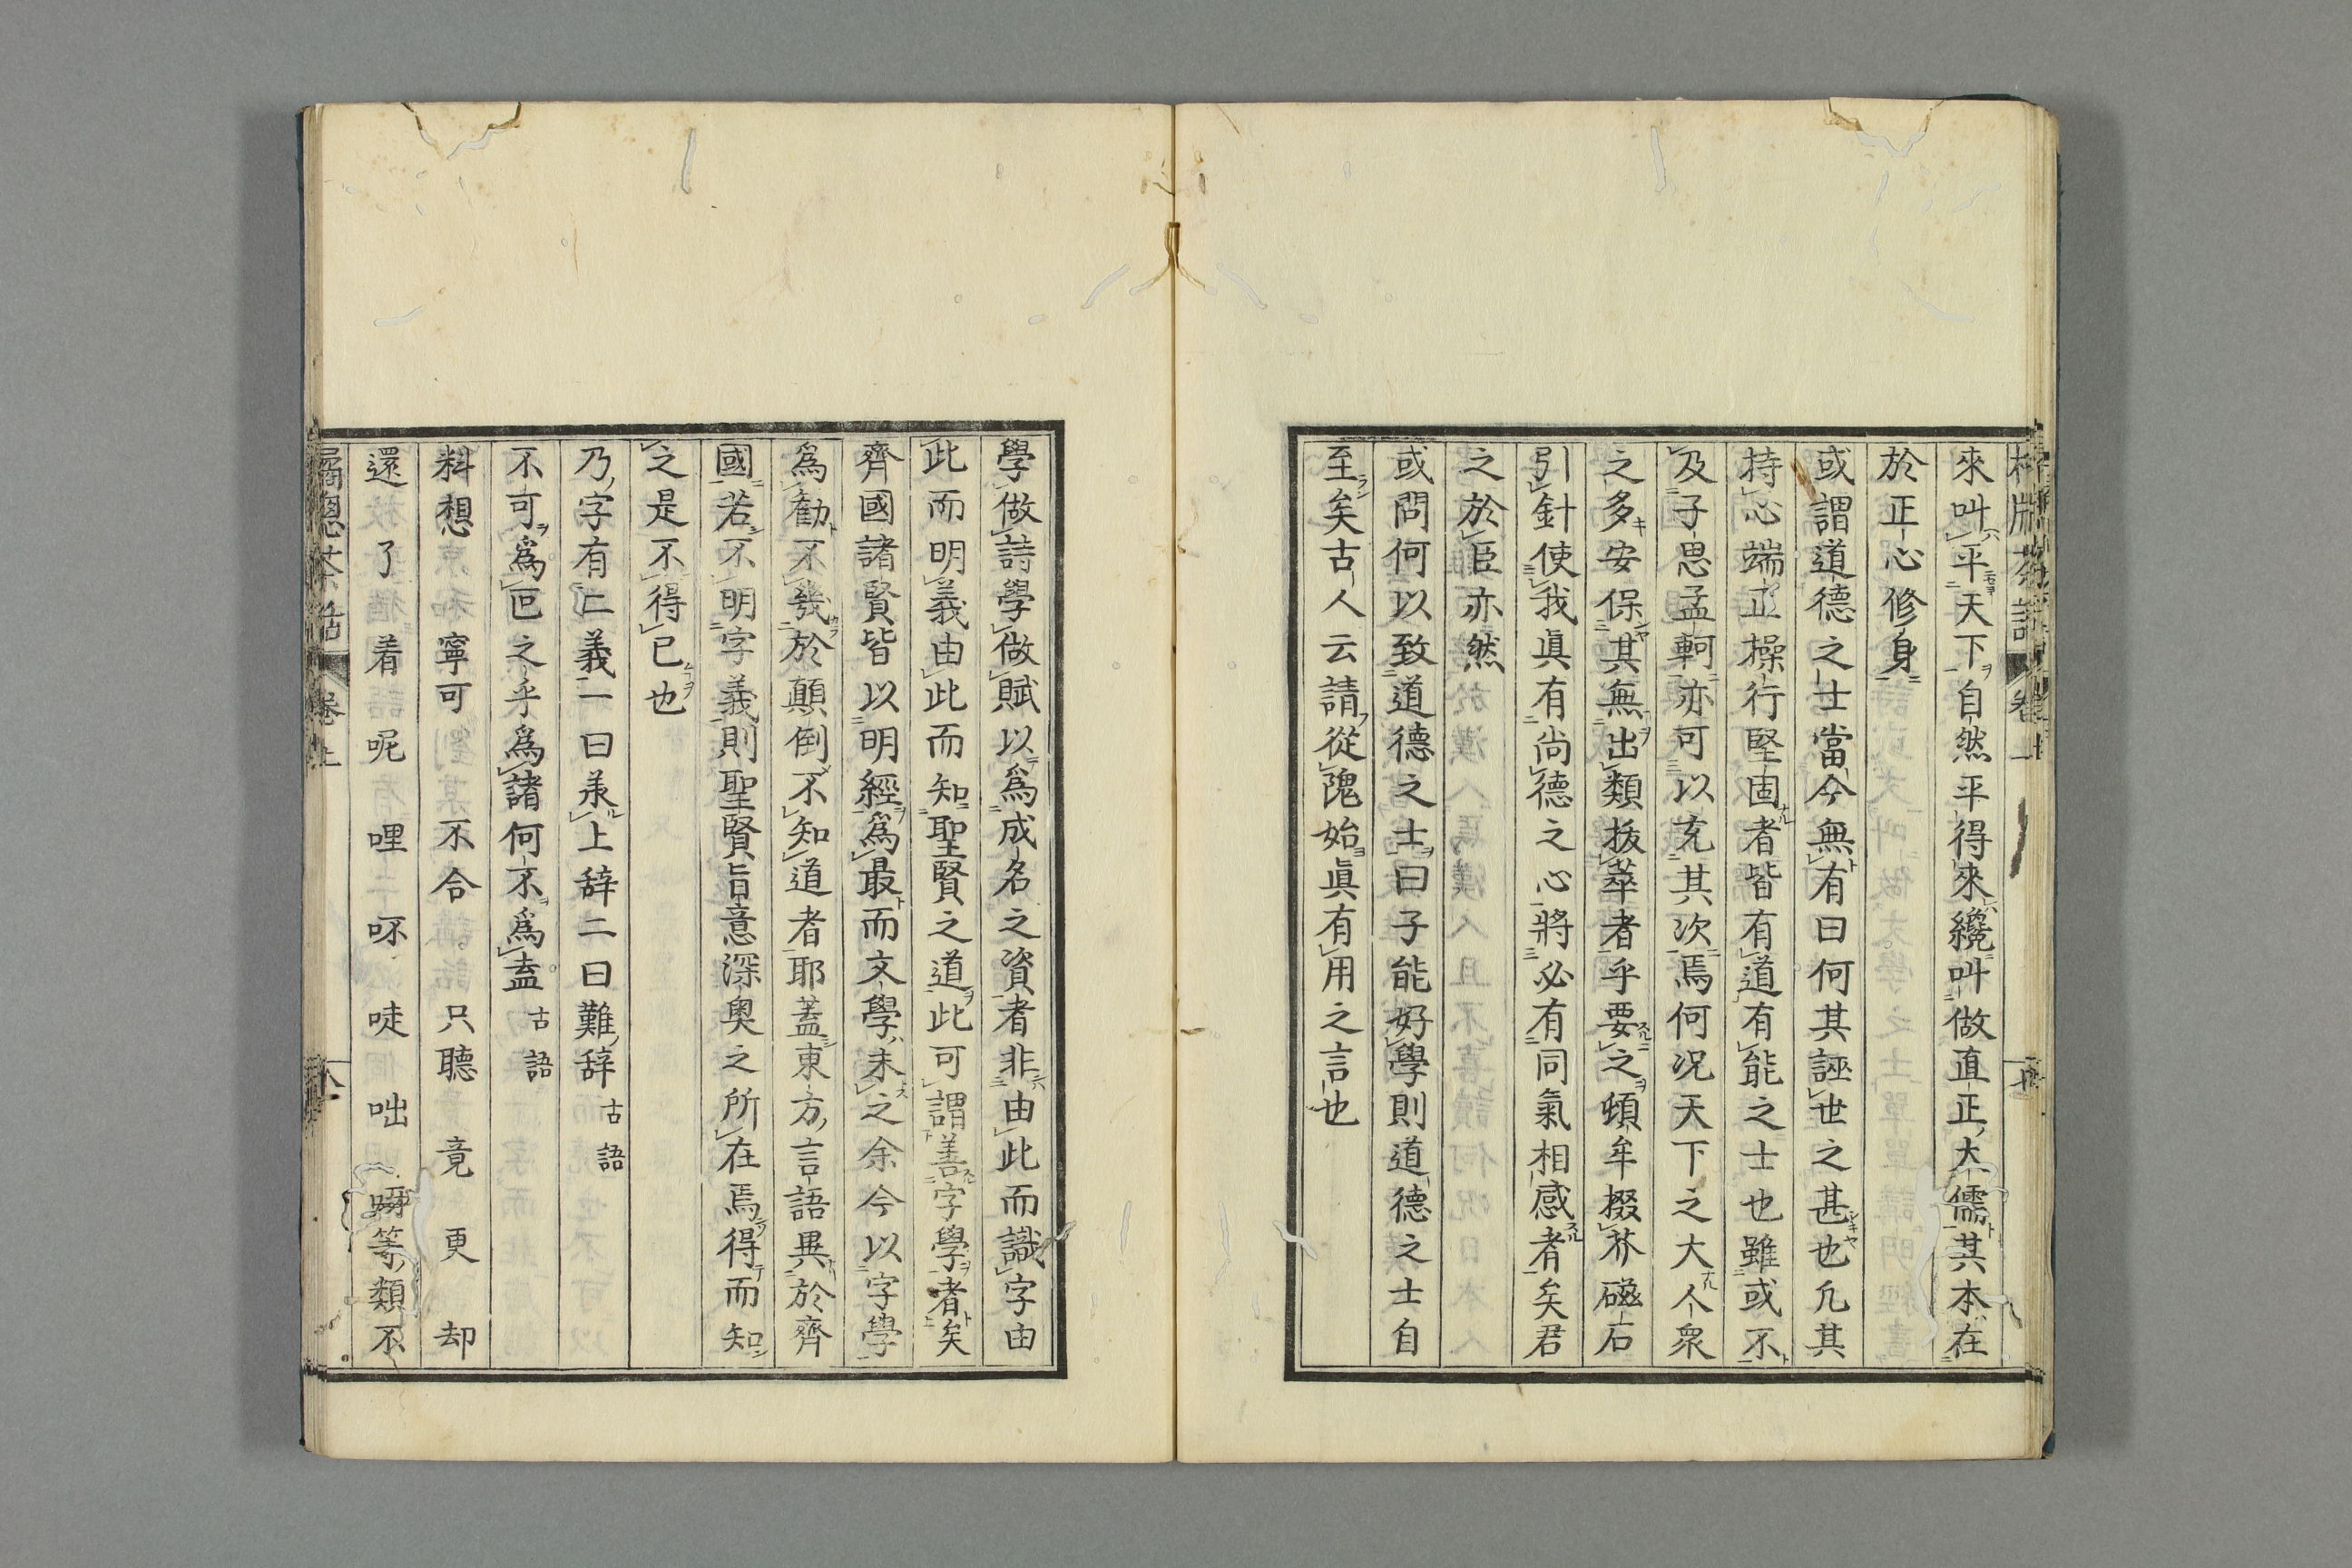 來叫平天下自然平得來纔叫做直正大儒其本在
於正心修身
或謂道德之士當今無有曰何其誣世之甚也凢其
持心端正操行堅固者皆有道有能之士也雖或不
及子思孟軻亦可以充其次焉何况天下之大人衆
之多安保其無出類拔萃者乎要之頓牟掇芥磁石
引針使我眞有尚德之心將必有同氣相感者矣君
之於臣亦然
或問何以致道德之士曰子能好學則道德之士自
至矣古人云請從隗始眞有用之言也
學做詩學做賦以爲成名之資者非由此而識字由
此而明義由此而知聖賢之道此可謂善字學者矣
齊國諸賢皆以明經爲最而文學未之余今以字學
爲勸不幾於顛倒不知道者耶蓋東方言語異於齊
國若不明字義則聖賢旨意深奥之所在焉得而知
之是不得已也
乃字有二義一曰羕上辞二曰難辞 古語
不可爲叵之乎爲諸何不爲盍 古語
料想 寧可 不合 只聽 竟 更 却
還 了 着 呢 哩 㖿 唗 咄 等類不
卷上